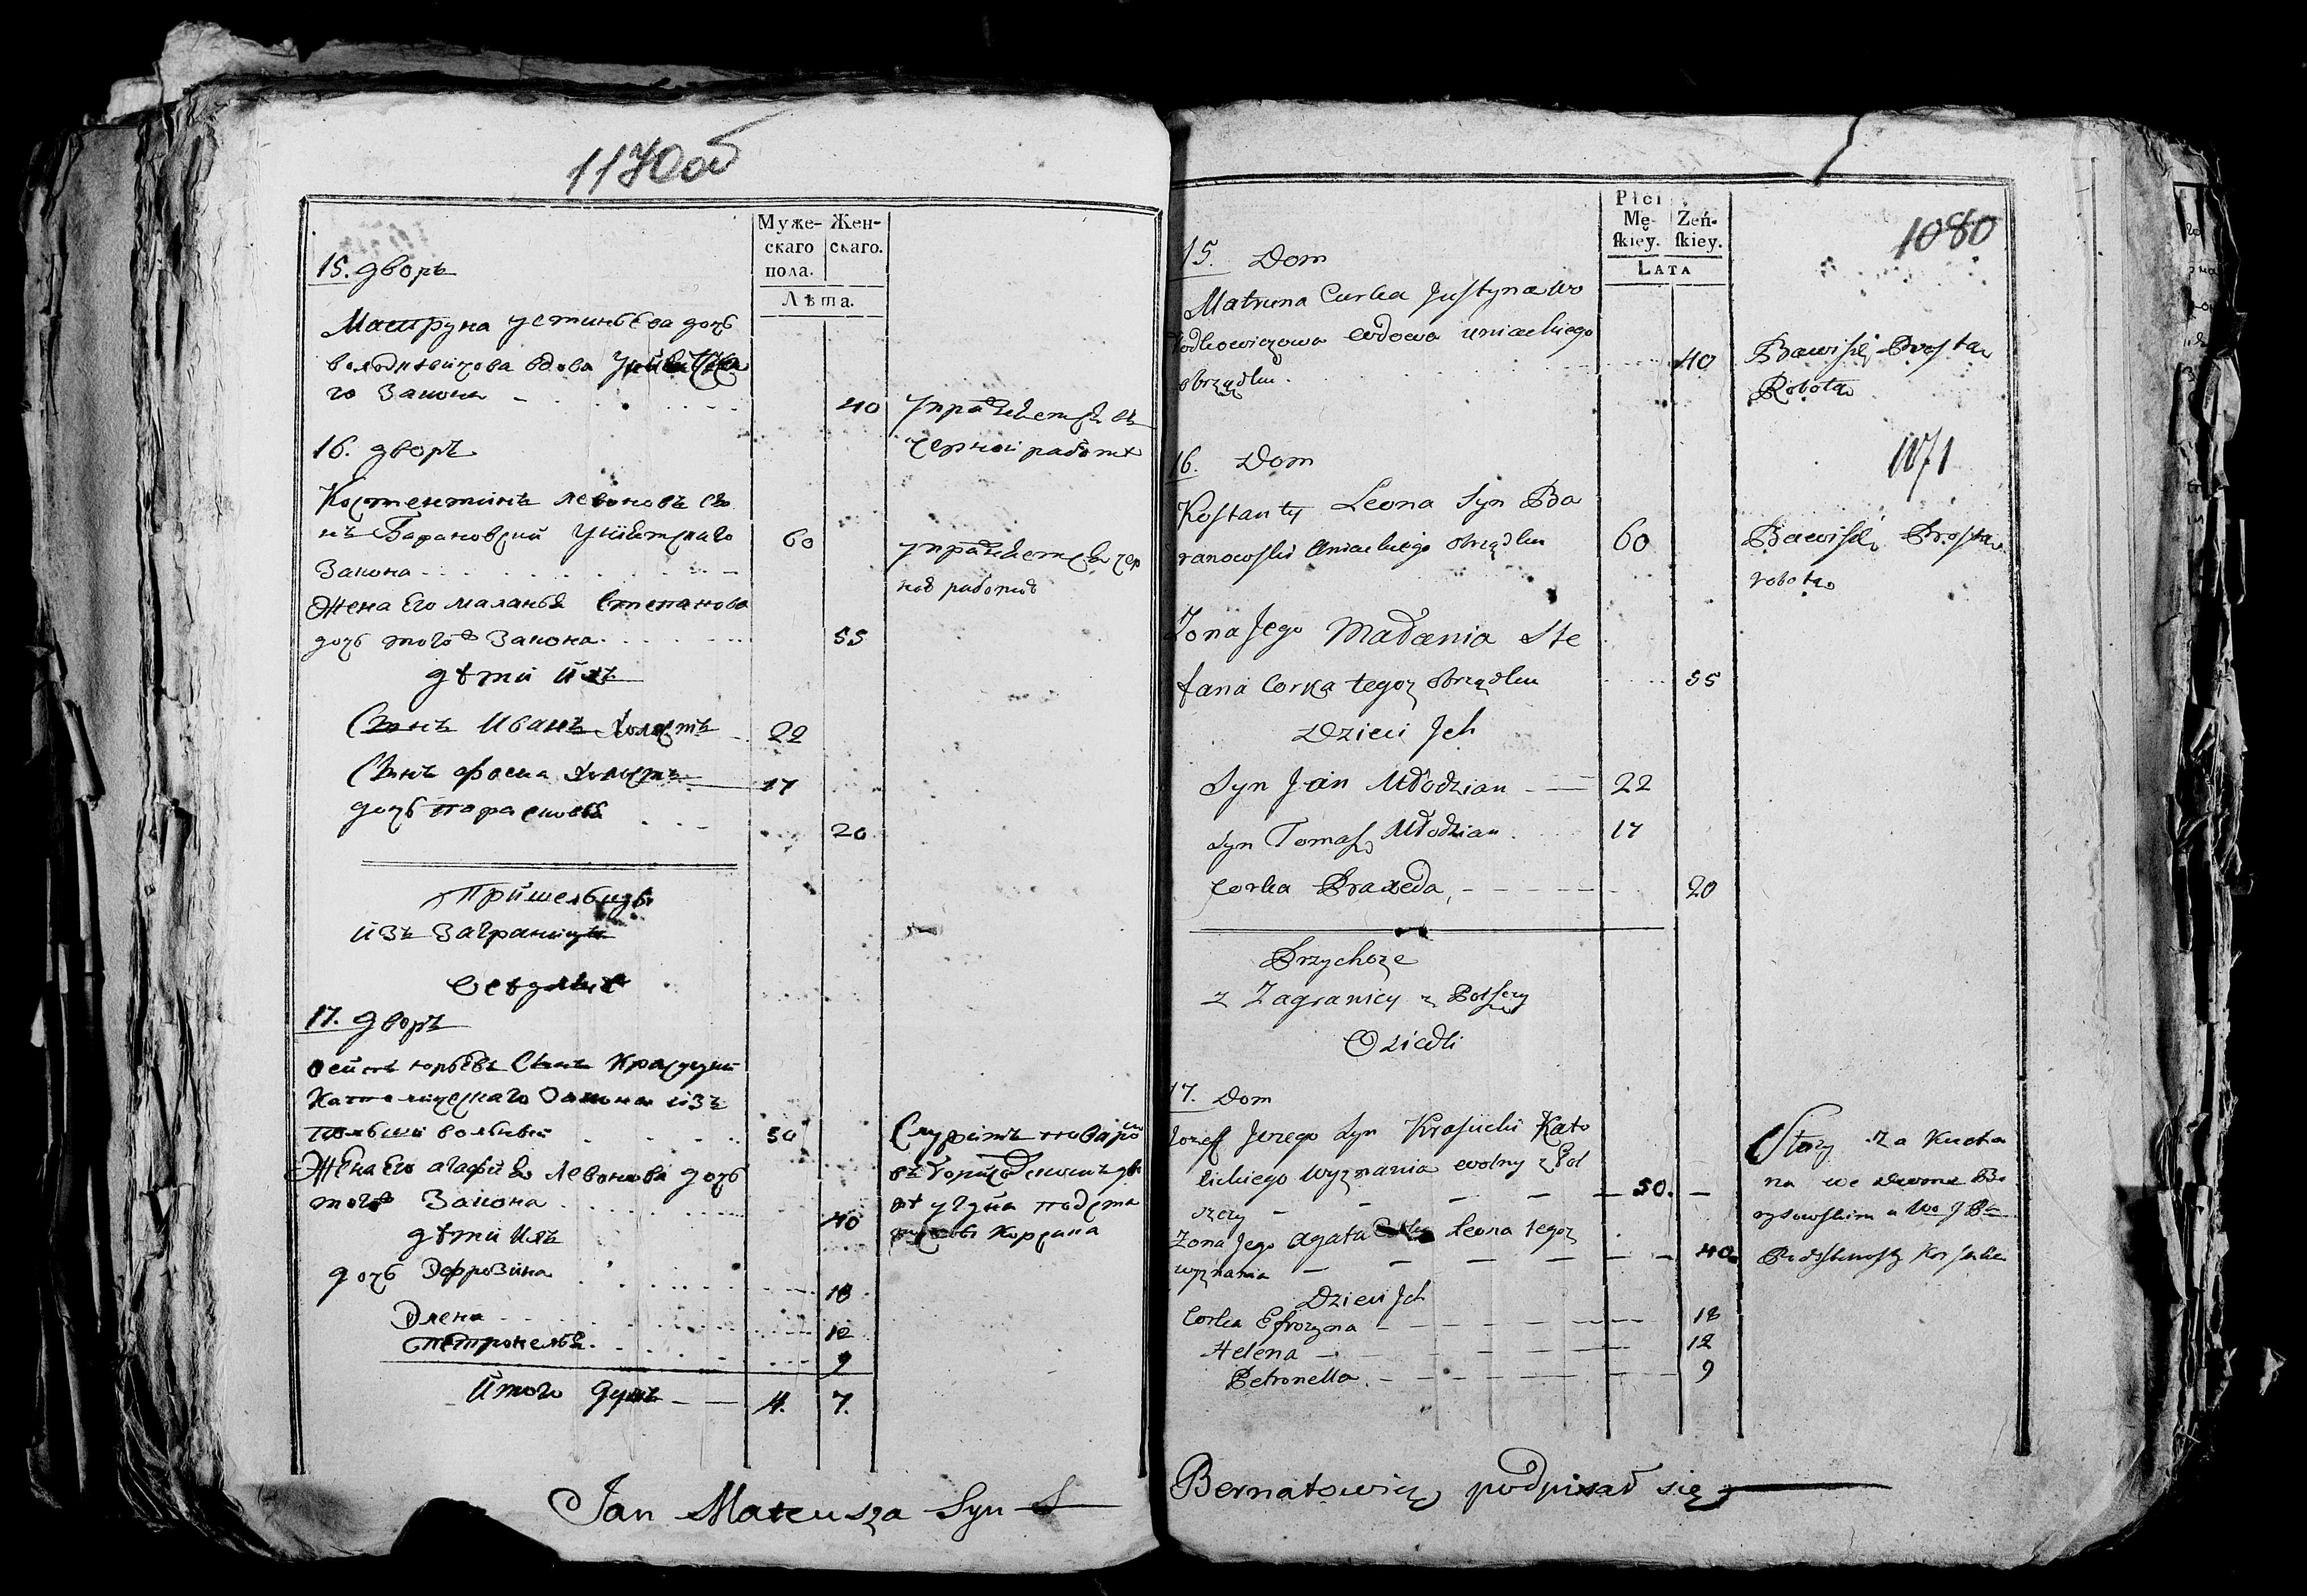 1170об
Муже-
скаго
пола.
Жен-
скаго.
Лѣта.
15. дворъ
Матруна устиньева дочь
вдова
го Закона 40
упражняетъся въ
черной работѣ
16. дворъ
Костентинъ левоновъ сы
нъ Барановский Униятскаго 60
Закона
упражняетъся чер
ной работой
Жена Его маланья Степанова
дочь того Закона 55
дѣти ихъ
Сынъ Иванъ холостъ 22
Сынъ фома холостъ 17
дочь парасковья 20
Пришельцы
изъ Заграницы
Оседлые
17. дворъ
осипъ юрьевъ Сынъ Красуцкий
Католическаго Закона изъ
польши вольный 50
Жена Его агафия Левонова дочь
того Закона 40
дѣти ихъ
дочь Эфрозина 18
Элена 12
Петронеля 9
Итого душъ 4. 7.
Служитъ поваро
Корсака
Jan Mateusza Syn S
1080
Płci
Mę-
ſkiey.
Żeń-
ſkiey.
Lata
15. Dom
Matruna Curka Justyna Wo
łodkowiczowa wdowa uniackiego
obrządku. 40
Bawi się Prostą
Robotą
1071
16. Dom
Kostanty Leona Syn Ba
ranowski Uniackiego obrządku 60
Bawi się Prostą
robotą
Zona Jego Małania Ste
fana Corka tegoz obrządku 55
Dzieci Jch
Syn Jan Młodzian 22
Syn Tomasz Młodzian 17
Corka Praxeda, 20
Przychoze
z Zagranicy z Polszczy
Osiedli
17. Dom
Jozeff Jerzego Syn Krasucki Kato
lickiego Wyznania wolny z Pol
szczy 50.
Zona Jego Agata Leona tegoz
wyznania 40
Dzieci Jch
Corka Efrozyna 18
Helena 12
Petronella 9
Służy za Kucha
na we dworze Bo
rysowskim u
Podstarosty Korsaka
Bernatowicz podpisał się